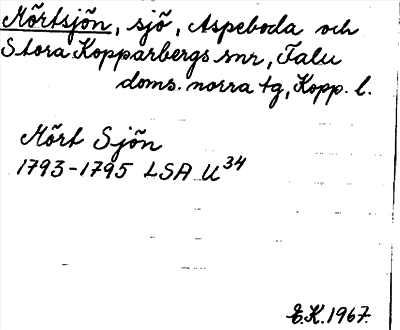 Mörtsjön, sjö, Aspeboda och
Stora Kopparbergs snr, Falu
doms. norra tg, Kopp. l.
Mört Sjön
1793-1795 LSA U34
E.K. 1967.